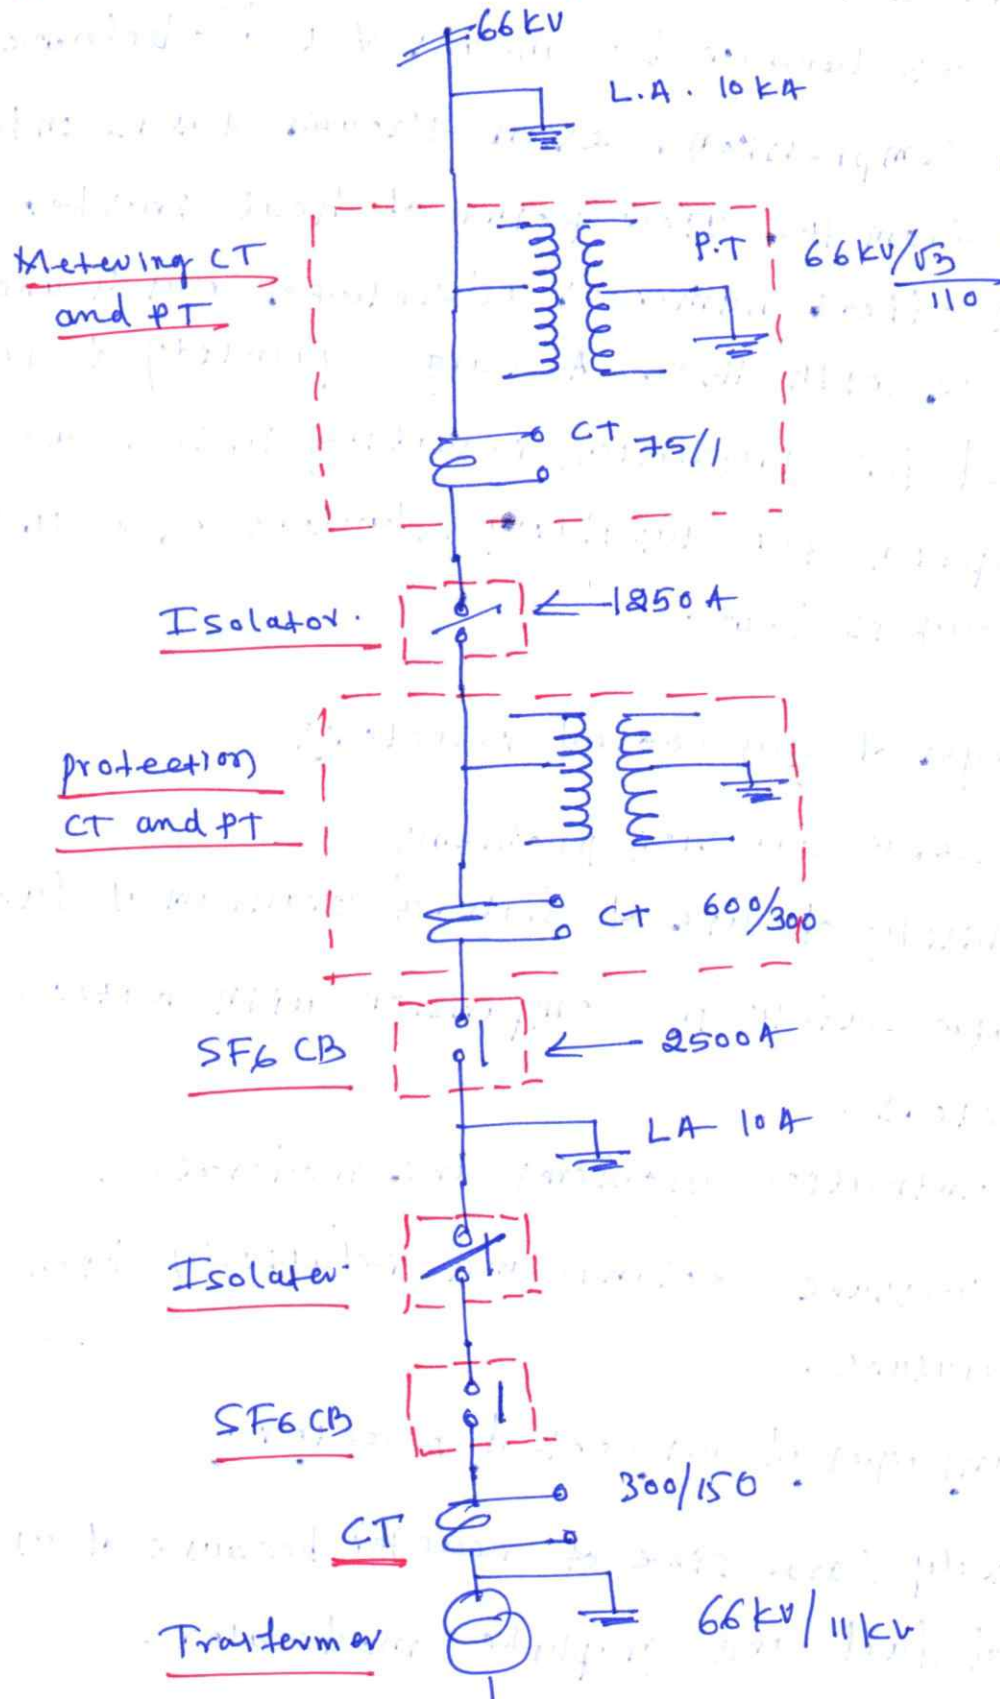 66KV
L.A. 10KA
Metering CT
and PT
P.T
66KV/√3
110
CT 75/1
Isolator.
1250A
Protection
CT and PT
CT. 600/300
SF6 CB
2500A
LA 10A
Isolater.
SF6 CB
300/150
CT
66KV/11KV
Trasfermer